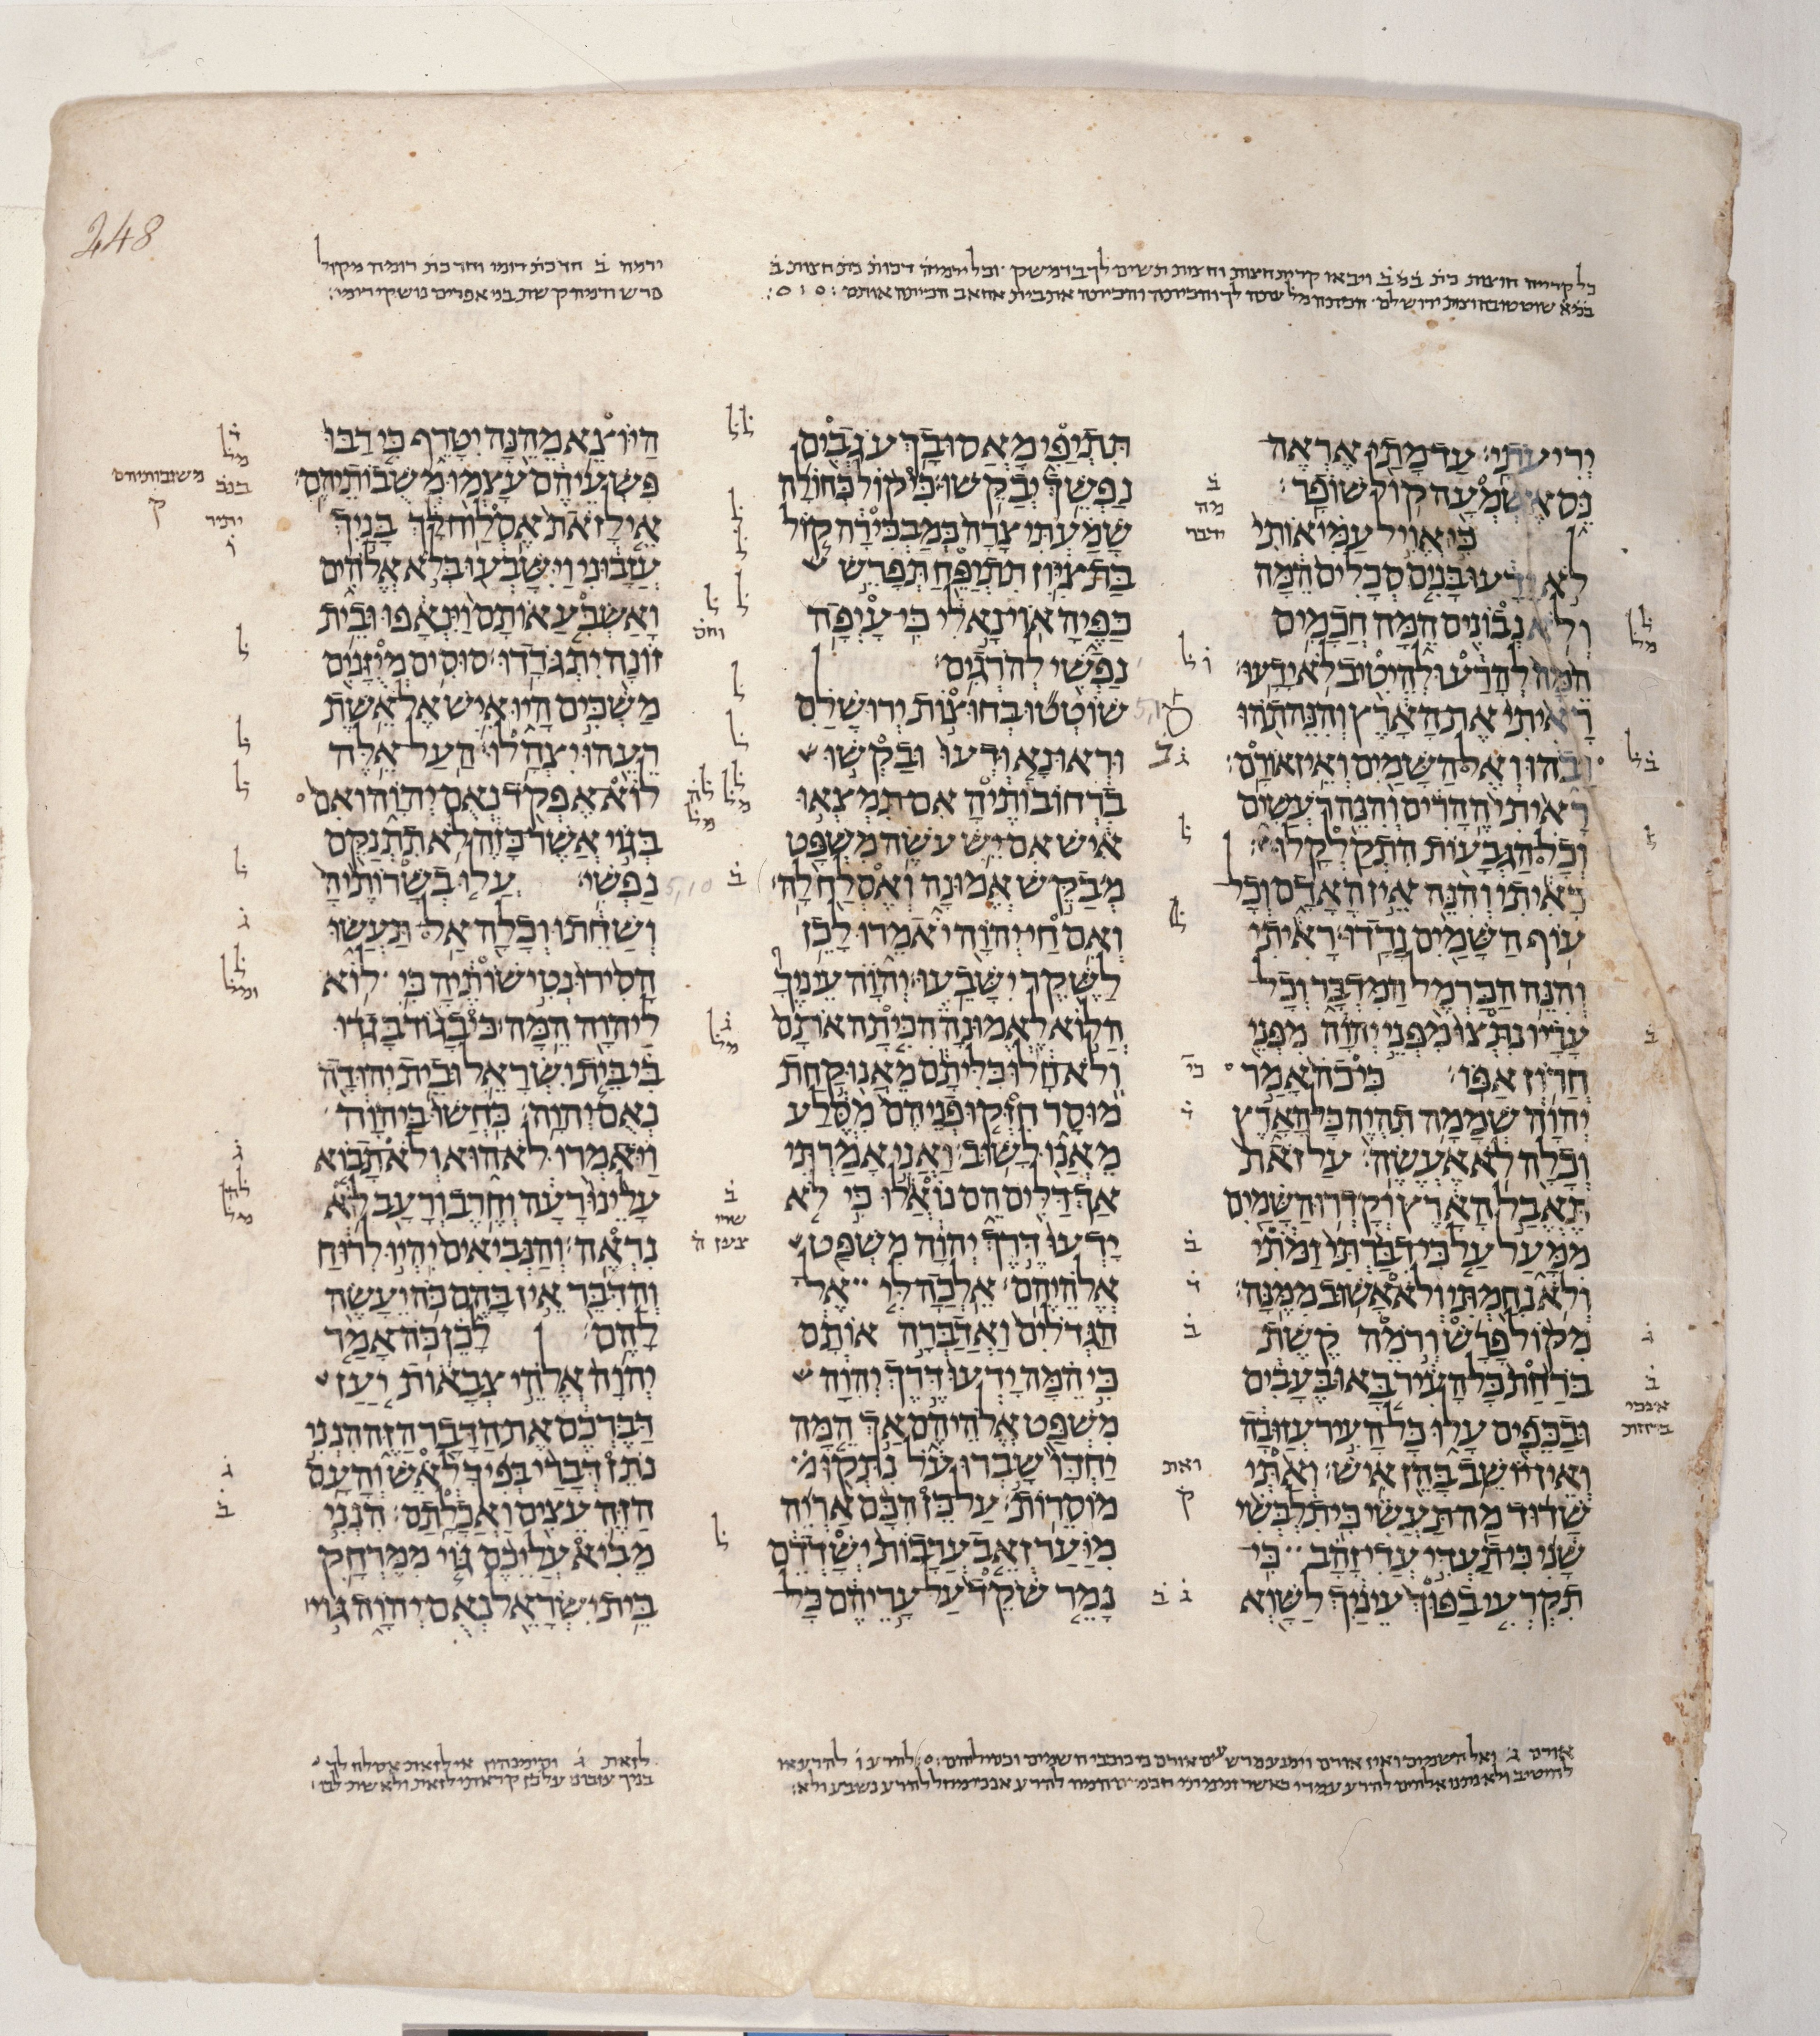 248
כל קריה חוצות כת ב מ ב ויבאו קרית חצות וחצות תשים לך בדמשק וכל ירמיה דכות כת חצות ב
במא שוטטו בחוצות ירושלם
ירמה ב חד כת רומי וחד כת רומה מקול
פרש ורמה קשת בני אפרים נושקי רומי׃
יריעתי׃ עד מתי אראה
נס אשמעה קול שופר׃
כי אויל עמי אותי
לא ידעו בנים סכלים המה
ולא נבונים המה חכמים
המה להרע ולהיטיב לא ידעו׃
ראיתי את הארץ והנה תהו
ובהו ואל השמים ואין אורם׃
ראיתי ההרים והנה רעשים
וכל הגבעות התקלקלו׃
ראיתי והנה אין האדם וכל
עוף השמים נדדו׃ ראיתי
והנה הכרמל המדבר וכל
עריו נתצו מפני יהוה מפני
חרון אפו׃ כי כה אמר
יהוה שממה תהיה כל הארץ
וכלה לא אעשה׃ על זאת
תאבל הארץ וקדרו השמים
ממעל על כי דברתי זמתי
ולא נחמתי ולא אשוב ממנה׃
מקול פרש ורמה קשת
ברחת כל העיר באו בעבים
ובכפים עלו כל העיר עזובה
ואין יושב בהן איש׃ ואתי
שדוד מה תעשי כי תלבשי
שני כי תעדי עדי זהב כי
תקרעי בפוך עיניך לשוא
תתיפי מאסו בך עגבים
נפשך יבקשו׃ כי קול כחולה
שמעתי צרה כמבכירה קול
בת ציון תתיפח תפרש
כפיה אוי נא לי כי עיפה
נפשי להרגים׃
שוטטו בחוצות ירושלם
וראו נא ודעו ובקשו
ברחובותיה אם תמצאו
איש אם יש עשה משפט
מבקש אמונה ואסלח לה׃
ואם חי יהוה יאמרו לכן
לשקר ישבעו׃ יהוה עיניך
הלוא לאמונה הכיתה אתם
ולא חלו כליתם מאנו קחת
מוסר חזקו פניהם מסלע
מאנו לשוב׃ ואני אמרתי
אך דלים הם נואלו כי לא
ידעו דרך יהוה משפט
אלהיהם׃ אלכה לי אל
הגדלים ואדברה אותם
כי המה ידעו דרך יהוה
משפט אלהיהם אך המה
יחדו שברו על נתקו מ
מוסרות׃ על כן הכם אריה
מיער זאב ערבות ישדדם
נמר שקד על עריהם כל
היוצא מהנה יטרף כי רבו
פשעיהם עצמו משבותיהם׃
אי לזאת אסלוח לך בניך
עזבוני וישבעו בלא אלהים
ואשבע אותם וינאפו ובית
זונה יתגדדו׃ סוסים מיזנים
משכים היו איש אל אשת
רעהו יצהלו׃ העל אלה
לוא אפקד נאם יהוה ואם
בגוי אשר כזה לא תתנקם
נפשי׃ עלו בשרותיה
ושחתו וכלה אל תעשו
הסירו נטישותיה כי לוא
ליהוה המה׃ כי בגוד בגדו
בי בית ישראל ובית יהודה
נאם יהוה׃ כחשו ביהוה
ויאמרו לא הוא ולא תבוא
עלינו רעה וחרב ורעב לוא
נראה׃ והנביאים יהיו לרוח
והדבר אין בהם כה יעשה
להם׃ לכן כה אמר
יהוה אלהי צבאות יען
דברכם את הדבר הזה הנני
נתן דברי בפיך לאש והעם
הזה עצים ואכלתם׃ הנני
מביא עליכם גוי ממרחק
בית ישראל נאם יהוה גוי
משובותיהם
ק
יתיר
ו
אורם ג ואל השמים ואין אורם וימנע מרשעים אורם כי כוכבי השמים וכסיליהם׃ להרע ו להרע או
להיטיב ולא נתנו אלהים להרע עמדי כאשר
לזאת ג וסימנהון אי לזאת אסלח לך
בניך עזבוני על כן קראתי לזאת ולא שת לבו